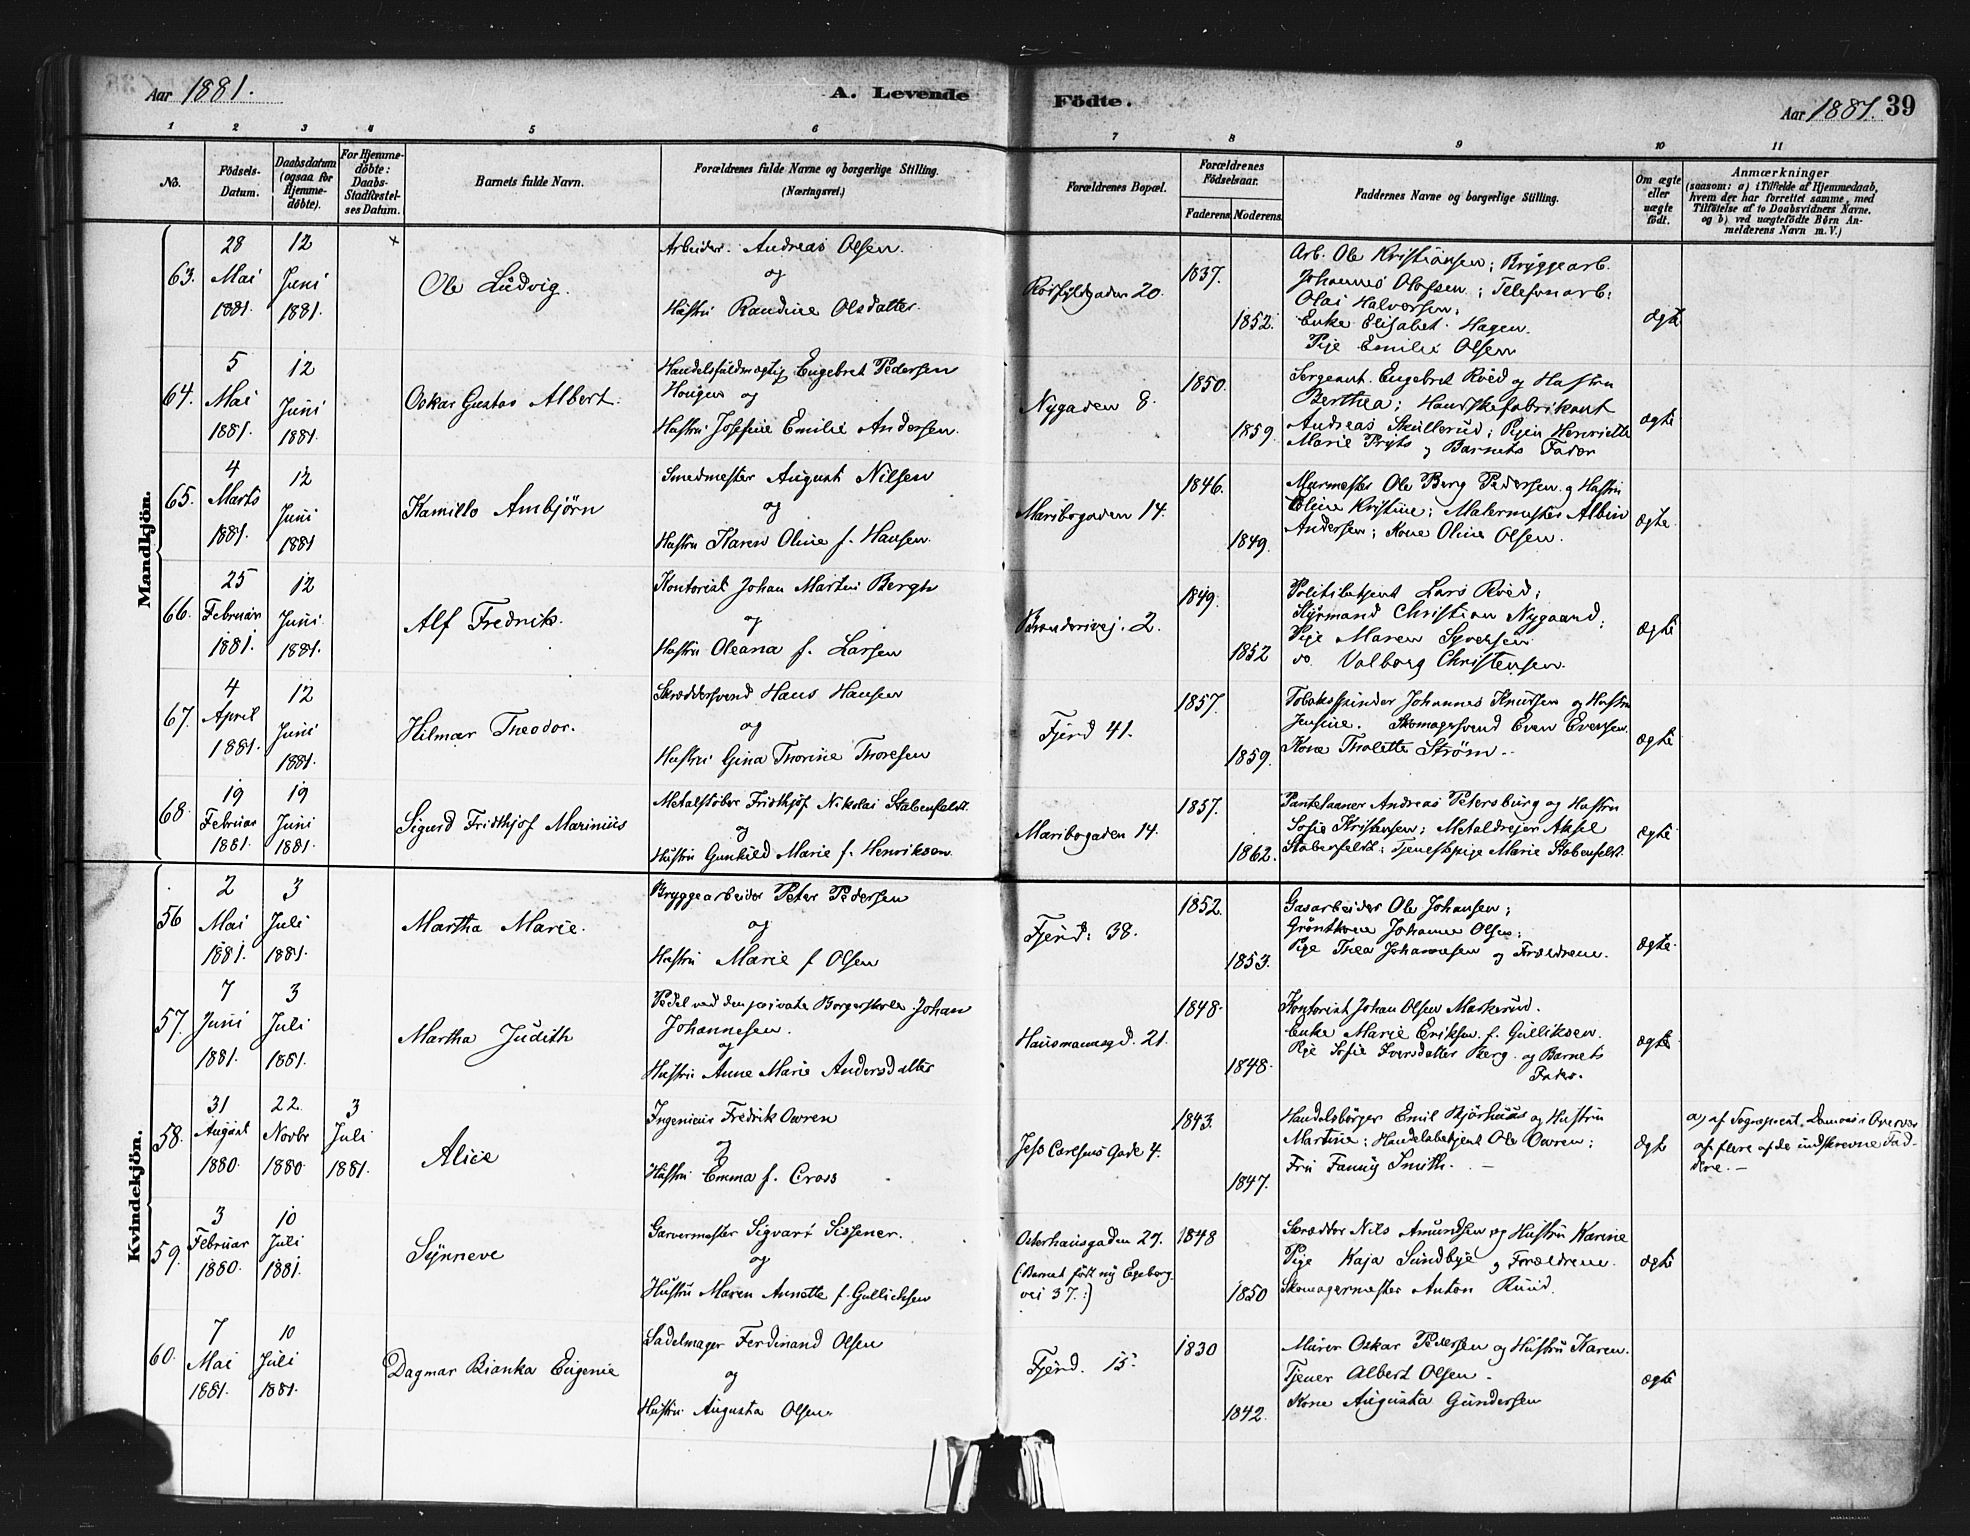 Aar 1881.
A. Levende Födte.
Aar 1881. 39
1 2 3 4 5 6 7 8 9 10 11
No.
Födsels-Datum.
Daabsdatum (ogsaa for Hjemme-döbte).
For Hjemme-döbte: Daabs-Stadfæstel-ses Datum.
Barnets fulde Navn.
Forældrenes fulde Navne og borgerlige Stilling. (Næringsvei.)
Forældrenes Bopæl.
Forældrenes Födselsaar.
Faderens. Moderens.
Faddernes Navne og borgerlige Stilling.
Om ægte eller uægte födt.
Anmærkninger
(saasom: a) i Tilfælde af Hjemmedaab,
hvem der har forrettet samme, med
Tilföielse af to Daabsvidners Navne.
og b) ved uægtefödte Börn An-
melderens Navn m. V.)
Mandkjön.
63. 28 Mai 1881. 12 Juni 1881. ×
Ole Ludvig.
Arbeider. Andreas Olsen.
og
Hustru Randine Olsdatter.
20. 1837. 1852.
Arb. Ole Kristiansen; Bryggearb.
Johannes Olofsen; Telefonarb:
Olai Halvorsen;
Enke Elisabet Hagen.
Pige Emilie Olsen
ægte
64. 5 Mai 1881. 12 Juni 1881.
Oskar Gustav Albert.
Handelsfuldmægtig Engebret Pedersen
Haugen og
Hustru Josefine Emilie Andersen.
Nygaden 8. 1850. 1859.
Sergeant. Engebret Röed og Hustru
Berthea; Handskefabrikant
Andreas Skullerud; Pigen Henriette
Marie og Barnets Fader
ægte
65. 4 Marts 1881. 12 Juni 1881
Kamillo Ambjörn
Smedmester August Nilsen
og
Hustru Karen Oline f. Hansen.
Maribogaden 14. 1846. 1849.
Murmester Ole Berg Pedersen og Hustru
Eline Kristine; Malermester Albin
Andersen; Kone Oline Olsen.
ægte
66. 25 Februar 1881. 12 Juni 1881.
Alf Fredrik.
Kontorist Johan Martin Bergh
og
Hustru Oleana f. Larsen
2. 1849. 1852
Politibetjent Lars Röed;
Styrmand Christian Nygaard;
Pige Maren Syversen
do. Valborg Christensen.
ægte
67. 4 April 1881. 12 Juni 1881.
Hilmar Theodor.
Skræddersvend Hans Hansen
og
Hustru Gina Thorine Thoresen
Fjerd 41. 1857. 1859.
Tobaksspinder Johannes Knutsen og Hustru
Jensine. Skomagersvend Even Evensen.
Kone Tholette Ström.
ægte
68. 19 Februar 1881. 19 Juni 1881.
Sigurd Fridthjof Marinius
Metalstöber Fridthjof Nikolai Stabenfeldt.
og
Hustru Gunhild Marie f. Henriksen.
Maribogaden 14. 1857. 1862.
Pantelaaner Andreas Petersburg og Hustru
Sofie Kristensen; Metaldreier Aksel
Stabenfeldt; Tjenestepige Marie Stabenfeldt.
ægte
Kvindekjön.
56 2 Mai 1881. 3 Juli 1881.
Martha Marie.
Bryggearbeider Peter Pedersen
og
Hustru Marie f Olsen
Fjerd: 38. 1852. 1853.
Gasarbeider Ole Johansen;
Johanne Olsen;
Pige Thea Johannesen og Forældrene.
ægte.
57. 7 Juni 1881. 3 Juli 1881.
Martha Judith
Pedel ved den private Borgerskole Johan
Johannesen.
og
Hustru Anne Marie Andersdatter
Hausmannsgd. 21. 1848. 1848.
Kontorist Johan Olsen Maskerud.
Enke Marie Eriksen f. Gulliksen.
Pige Sofie Iversdatter Berg. og Barnets
Fader.
ægte
58. 31 August 1880. 22. Novbr 1880. 3 Juli 1881.
Alice
Ingeniör Fredrik Owren
og
Hustru Emma f. Cross
Jess Carlsens Gade 4. 1843. 1847.
Handelsbörger Emil Bjórhuus og Hustru
Martine; Handelsbetjent Ole Owren;
Fru Fanny Smith. —
ægte
a) af Sognepræst i Overvær
af flere af de indskrevne Fad-
dere. —
59. 3 Februar 1880. 10 Juli 1881.
Synneve
Garvermester Sigvart Sissener.
og
Hustru Maren Annette f. Gullichsen
Osterhausgaden 27. 1848 1850
(Barnet födt i Egeberg-
vei 37.)
Skrædder Nils Amundsen og Hustru Karine
Pige Kaja Sundbye og Forældrene.
Skomagermester Anton Ruud.
ægte
60. 7 Mai 1881. 10 Juli 1881.
Dagmar Bianka Eugenie
Sadelmager Ferdinand Olsen
og
Hustru Augusta Olsen.
Fjerd. 15. 1830 1842.
Murer Oskar Pedersen og Hustru Karen.
Tjener Albert Olsen.
Kone Augusta Gundersen
ægte